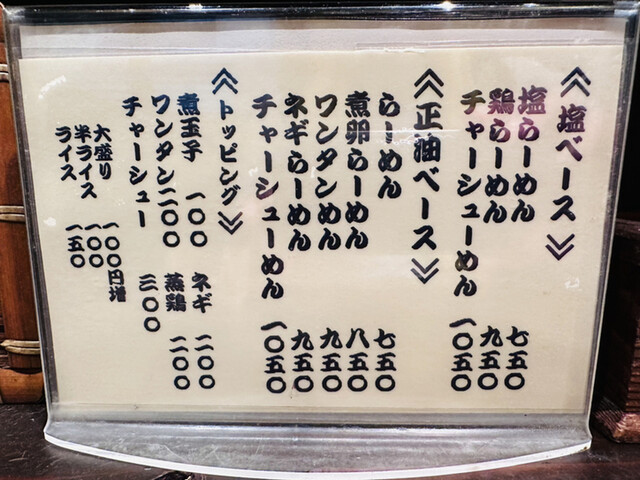 《塩ベース》
塩らーめん 七五〇
鶏らーめん 九五〇
チャーシューめん 一〇五〇
《正油ベース》
らーめん 七五〇
煮卵らーめん 八五〇
ワンタンめん 九五〇
ネギらーめん 九五〇
チャーシューめん 一〇五〇
《トッピング》
煮玉子 一〇〇 ネギ 二〇〇
ワンタン二〇〇 蒸鶏 二〇〇
チャーシュー 三〇〇
大盛り 一〇〇円増
半ライス 一〇〇
ライス 一五〇